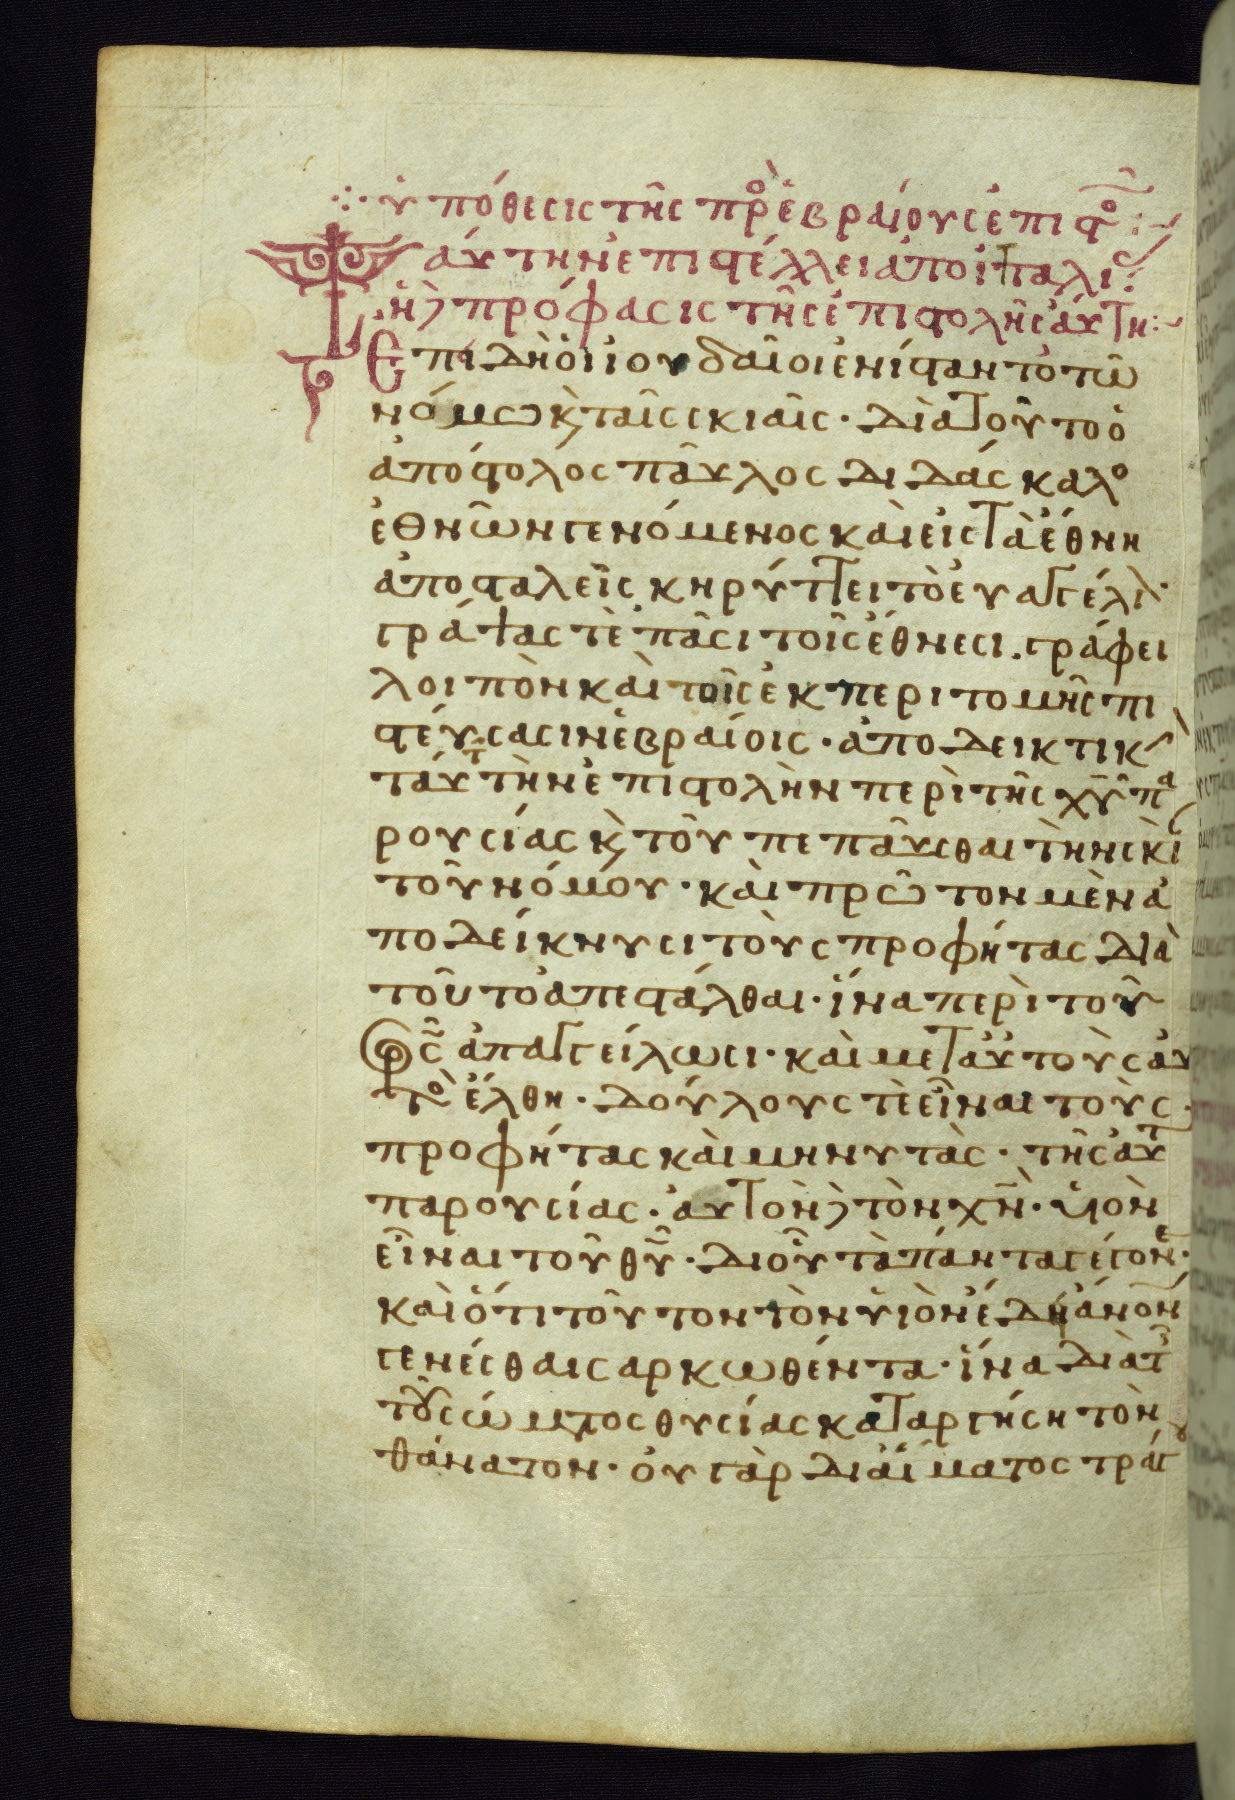 ὑπόθεσις τῆς πρὸ ἑβραίους ἐπιϛο
Ταύτην ἐπιϛέλλει ἀπὸ ἰταλι
ἡ πρόφασις τῆς ἐπιϛολῆς αὕτη
Ἐπιδὴ οἱ ἰουδαῖοι ἐνίϛαντο τῶ
νόμω κ ταῖς σκιαῖς · διὰ τοῦτο ὁ
ἀπόϛολος παῦλος διδάσκαλο
ἐθνῶν γενόμενος καὶ εἰς τὰ ἔθνη
ἀποϛαλεῖς κηρύττει τὸ ευαγγέλι
γράψας τὲ πᾶσι τοῖς ἔθνεσι . γράφει
λοιπὸν καὶ τοῖς ἐκ περιτομῆς πι
ϛεύσασιν ἑβραίοις · ἀποδεικτικ
ταύτην τὴν ἐπιϛολὴν περὶ τῆς χυ πα
ρουσίας κ τοῦ πεπαῦσθαι τὴν σκι
τοῦ νόμου · καὶ πρῶτον μὲν ἀ
ποδείκνυσι τοὺς προφήτας διὰ
τοῦτο ἀπεϛάλθαι · ἵνα περὶ τοῦ
σρς ἀπαγγείλωσι · καὶ μετ αὐτοὺς αὐ
τὸ ἔλθη · δούλους τὲ εἶναι τοὺς
προφήτας καὶ μηνυτὰς · τῆς αὐτ
παρουσίας · αὐτὸν τὸν χν · υἱὸν
εἶναι τοῦ θυ · δι οὗ τὰ πάντα γέγονε ·
καὶ ὅτι τοῦτον τὸν υἱὸν ἔδη ἀνον
γενέσθαι σαρκωθέντα · ἵνα διὰ τ
τοῦ σώμτος θυσίας καταργήση τὸν
θάνατον · οὐ γὰρ δι αἵματος τράγ